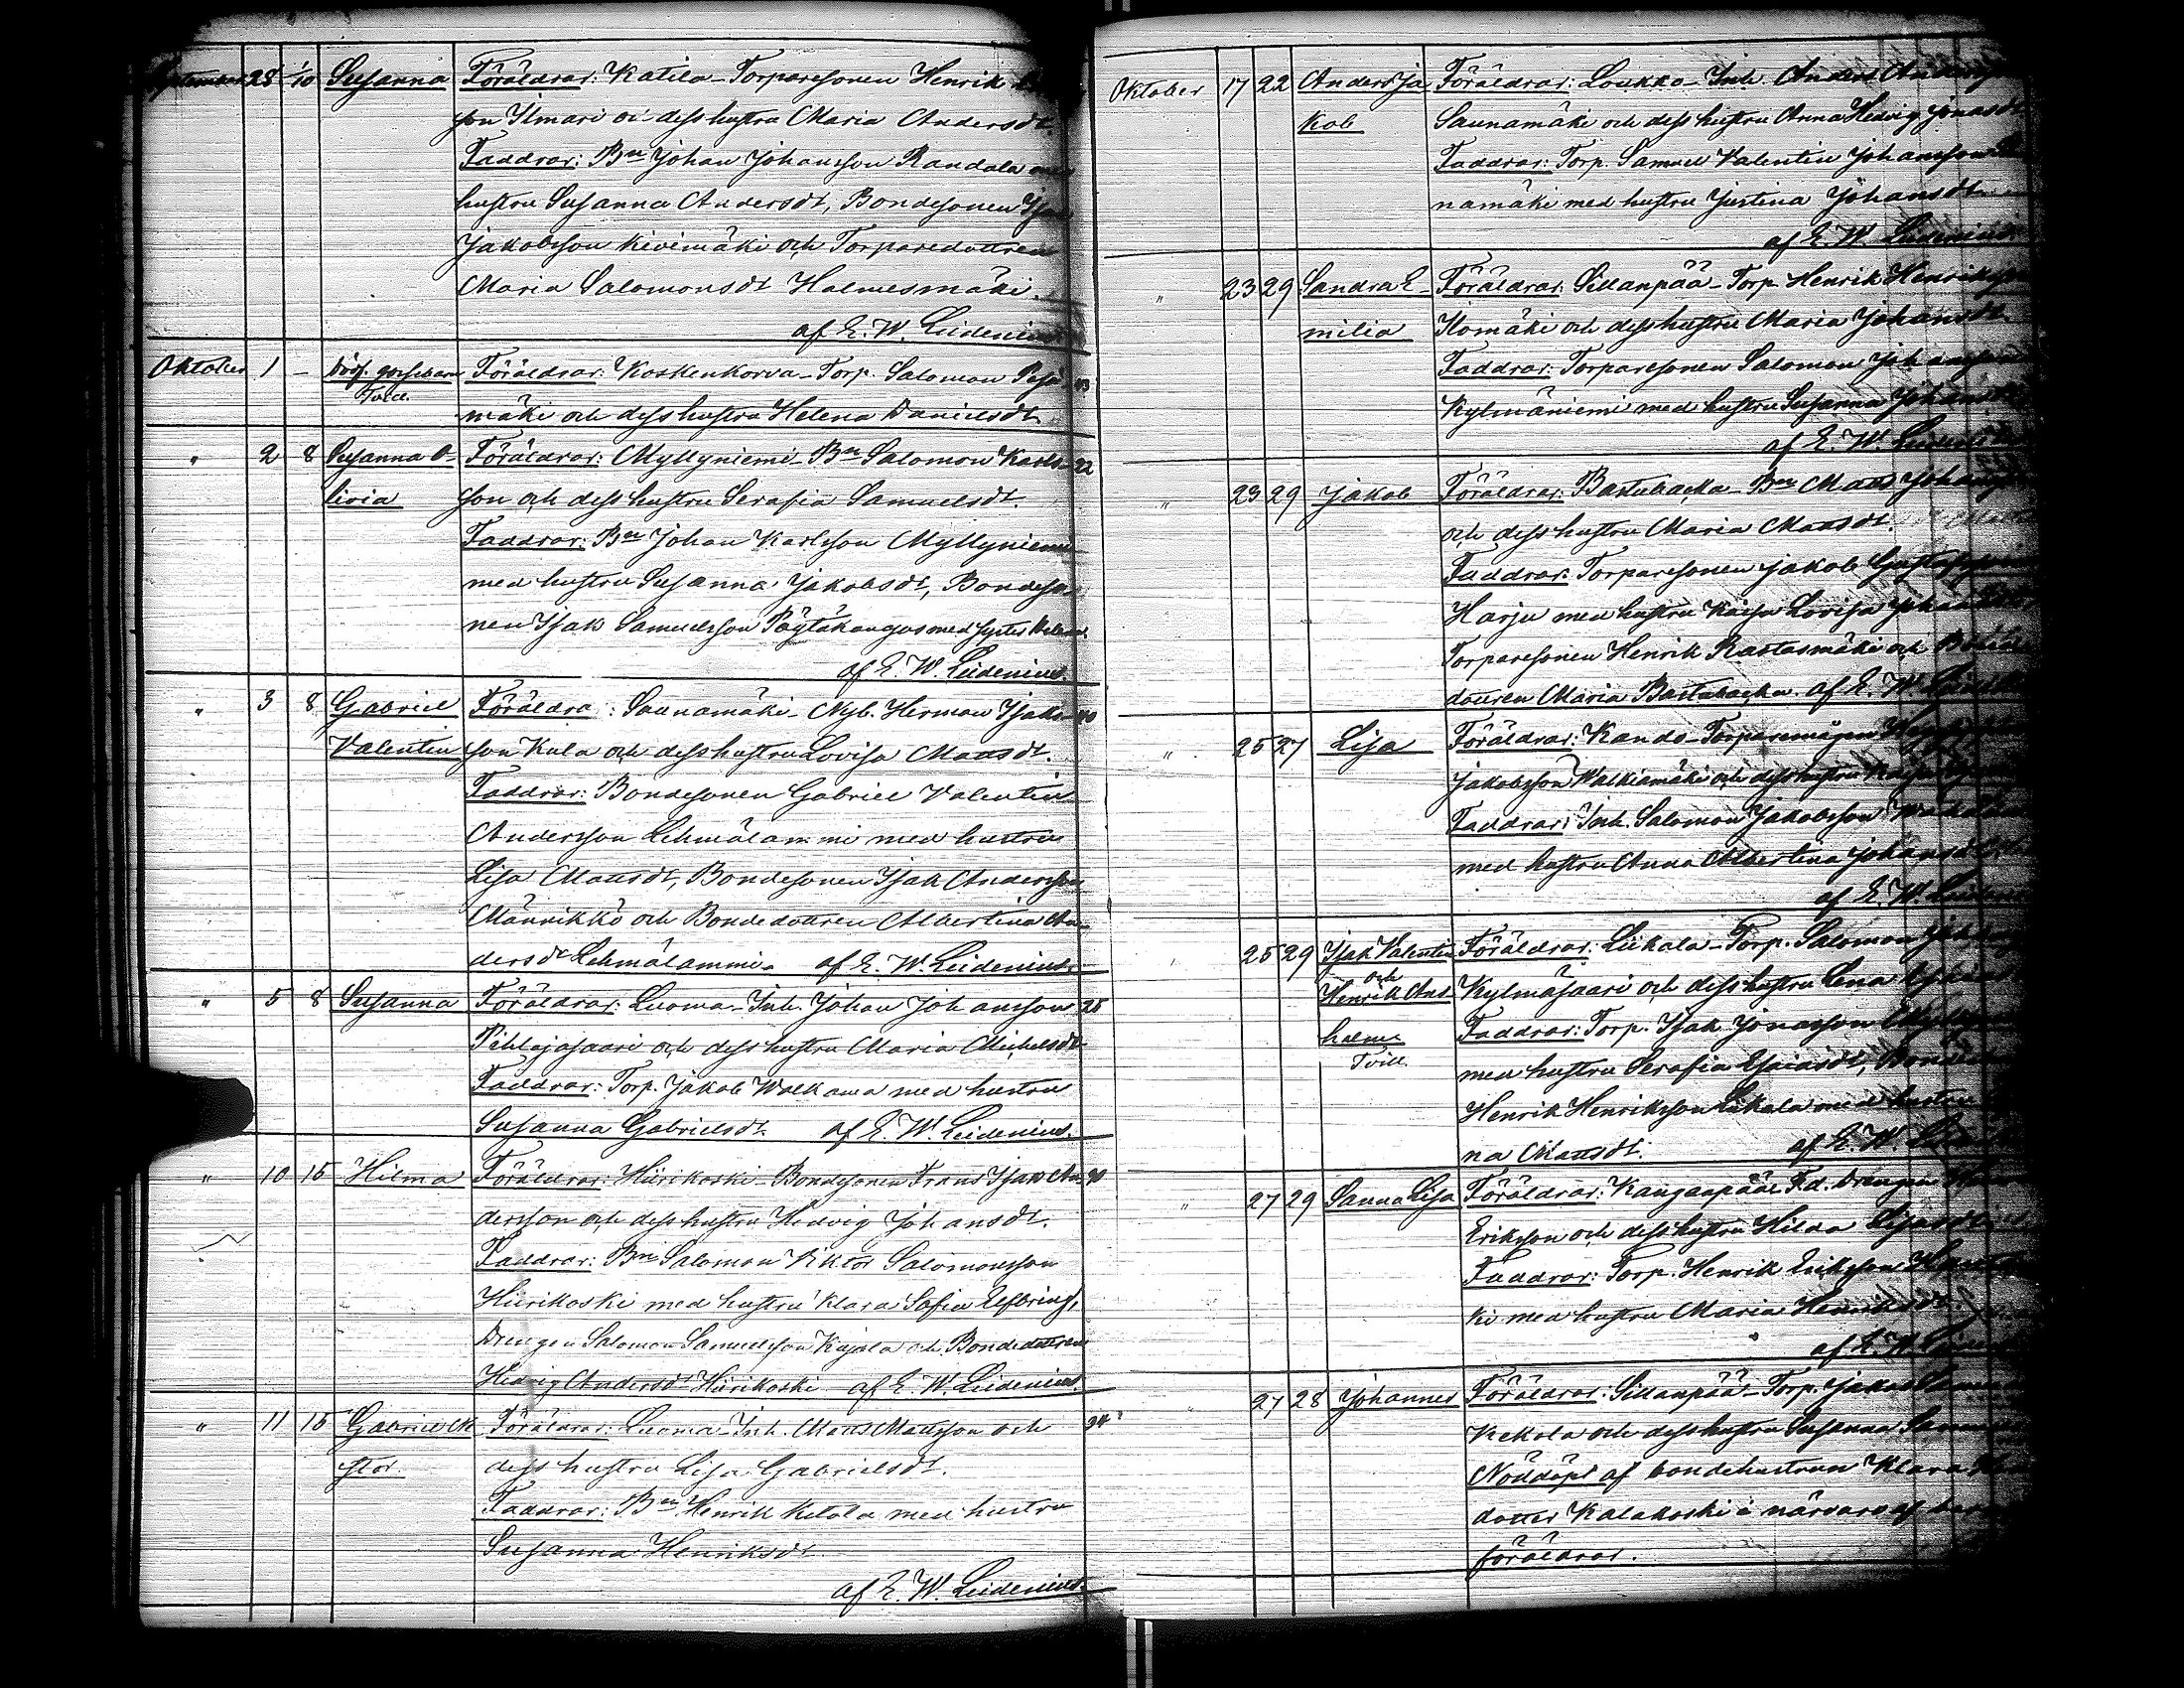 September 28 1/10 Susanna Föräldrar: Katila-Torparesonen Henrik
son Ilmari o. dess hustru Maria Andersdt.
Faddrar: Bn Johan Johansson Randala med
hustru Susanna Andersdt, Bondesonen Isak
Jakobsson Kivimäki och Torparedottren
Maria Salomonsdt Halmesmäki.
af E. W. Leidenius
Oktober 1 – dödf. gossebarn Föräldrar: Koskenkorva-Torp. Salomon Pesä- 43
mäki och dess hustru Helena Danielsdt.
" 2 8 Susanna O- Föräldrar: Myllyniemi-Bn Salomon Karls- 22
livia son och dess hustru Serafia Samuelsdt.
Faddrar: Bn Johan Karlsson Myllyniemi
med hustru Susanna Jakobsdt, Bondeso-
nen Isak Samuelsson Pöytäkangas med syster
af E. W. Leidenius.
" 3 8 Gabriel Föräldra: Saunamäki-Nyb. Herman Isaks- 40
Valentin son Kula och dess hustru Lovisa Mattsdt.
Faddrar: Bondesonen Gabriel Valentin
Andersson Lehmälammi med hustru
Lisa Mattsdt, Bondesonen Isak Andersson
Männikkö och Bondedottren Albertina An-
dersdt Lehmälammi. af E. W. Leidenius.
" 5 8 Susanna Föräldrar: Luoma-Inh. Johan Johansson 25
Pihlajasaari och dess hustru Maria Michelsdt
Faddrar: Torp. Jakob Walkama med hustru
Susanna Gabrielsdt. af E. W. Leidenius.
" 10 15 Hilma Föräldrar: Hiirikoski-Bondesonen Frans Isak An-
dersson och dess hustru Hedvig Johansdt.
Faddrar: Bn Salomon Viktor Salomonsson
Hiirikoski med hustru Klara Sofia Elfbring,
Drengen Salomon Samuelsson Kujala och Bondedottren
Hedvig Andersdt Hiirikoski af E. W. Leidenius.
" 11 15 Gabriel Ne- Föräldrar: Luoma-Inh. Matts Mattsson och 24
stor. dess hustru Lisa Gabrielsdt.
Faddrar: Bn Henrik Ketola med hustru
Susanna Henriksdt.
af E. W. Leidenius.
Oktober 17 22 Anders Ja- Föräldrar: Loukko-Inh. Anders Anders
kob Saunamäki och dess hustru Anna Hedvig Jonasdt
Faddrar: Torp. Samuel Valentin Johansson
namäki med hustru Justina Johansdt
af E. W. Leidenius.
" 23 29 Sandra E- Föräldrar: Sillanpää-Torp. Henrik Henriksson
milia Ilomäki och dess hustru Maria Johansdt.
Faddrar: Torparesonen Salomon Johansson
Kylmäniemi med hustru Susanna Johansdt
af E. W. Leidenius
" 23 29 Jakob Föräldrar: Bastubacka-Bn Matts Johansson
och dess hustru Maria Mattsdt.
Faddrar: Torparesonen Jakob Gustafsson
Harju med hustru Kaisa Lovisa
Torparesonen Henrik Rastasmäki och Bonde
dottren Maria Bastubacka. af E. W.
" 25 27 Lisa Föräldrar: Kando-Torparemågen
Jakobsson Walkiamäki och dess hustru Kaisa
Faddrar: Inh. Salomon Jakobsson
med hustru Anna Albertina Johansdt
af E. W. Leidenius
25 29 Isak Valentin Föräldrar: Liikala-Torp. Salomon
och
Henrik Ans- Kylmäsaari och dess hustru Lena
helm Faddrar: Torp. Isak Jonasson
Tvill. med hustru Serafia Esaiasdt,
Henrik Henriksson Liikala med hustru
na Mattsdt. af E. W.
" 27 29 Sanna Lisa Föräldrar: Kangaspää F.d. Drengen
Eriksson och dess hustru Hilda
Faddrar: Torp. Henrik Eriksson
ki med hustru Maria Henriksdt.
af E. W.
" 27 28 Johannes Föräldrar: Sillanpää-Torp. Jakob
Kekola och dess hustru Susanna
Nöddöpt af bondehustrun Klara
dotter Kalakoski i närvaro af
föräldrar.